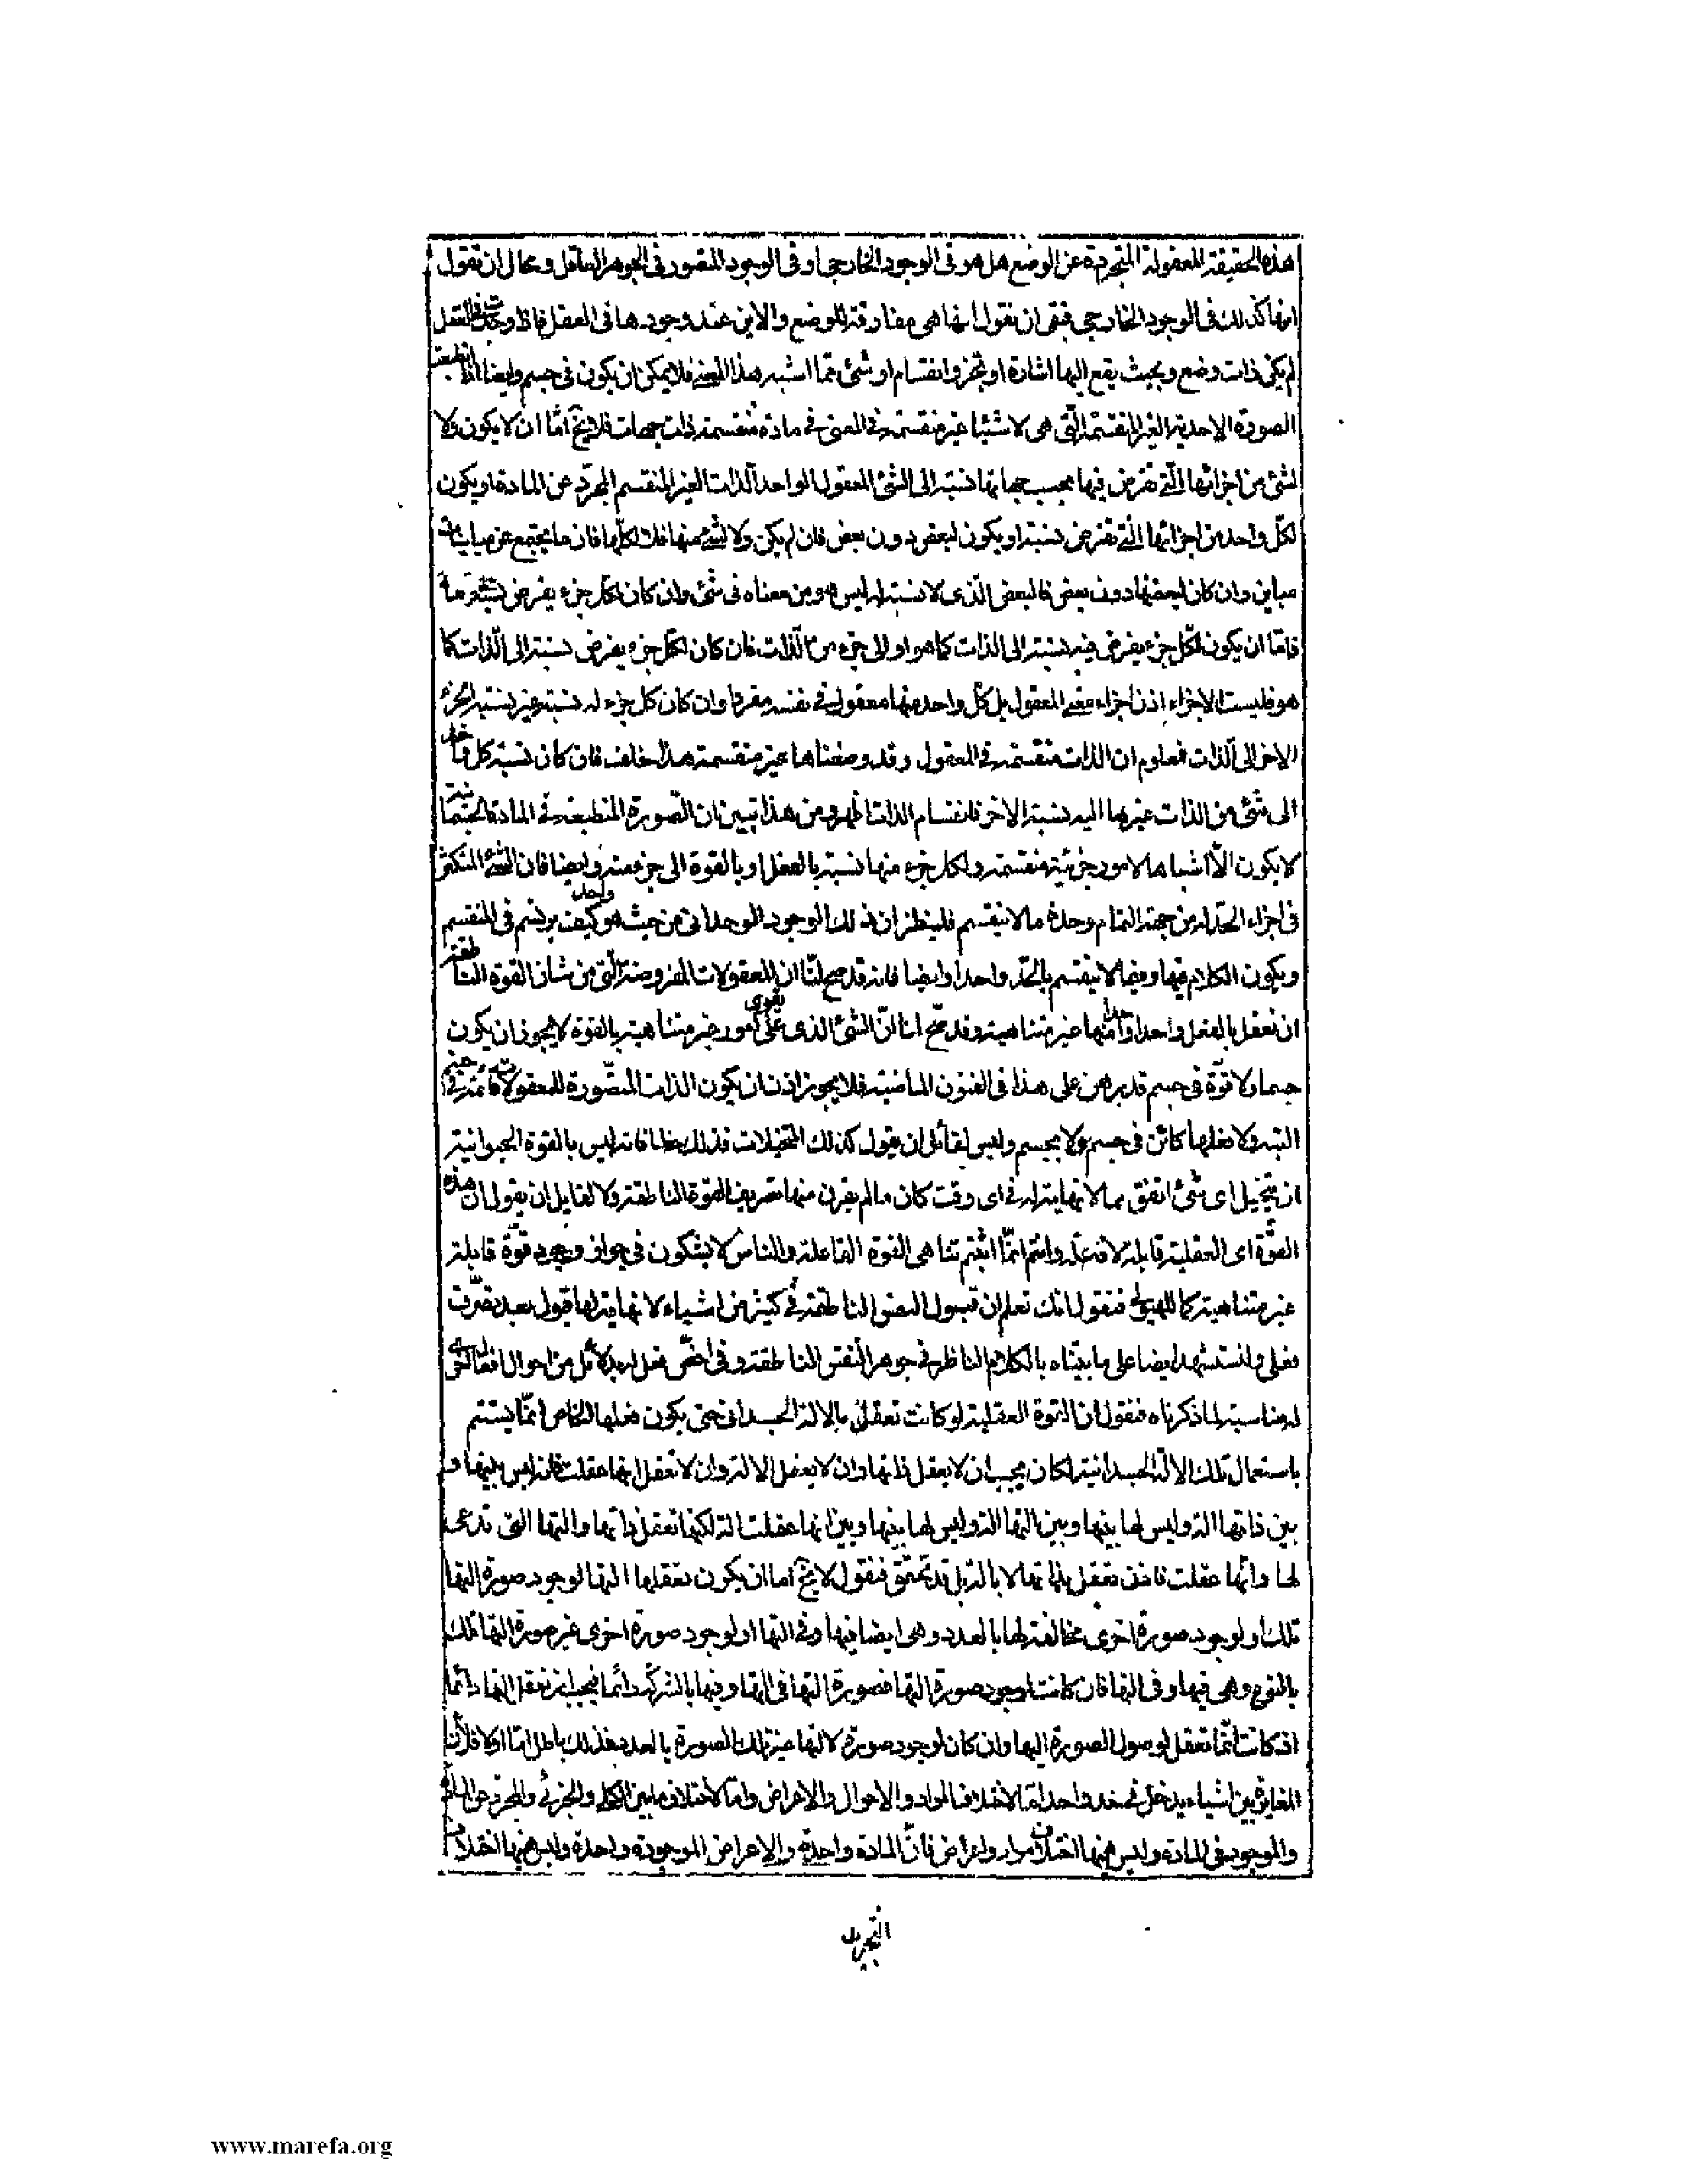 هذه الحقيقة المعقولة المتجردة عن الوضع هل هو فى الوجود الخارجى او فى الوجود المتصور فى الجوهر العاقل ومحال ان نقول
انها كذلك فى الوجود الخارجى فبقى ان نقول انها هى مفارقة للوضع والاين عند وجودها فى العقل فاذا وجدت فى العقل
لم يكن ذات وضع وبحيث يقع اليها اشارة او تجز وانقسام او شئ مما اشبه هذا المعنى فلا يمكن ان يكون فى جسم وايضا اذا انطبعت
الصورة الاحدية الغير المنقسمة التى هى لاشياء غير منقسمة فى المعنى فى مادة منقسمة ذات جهات فلا يخ اما ان لا يكون ولا
لشئ من اجزائها التى تفرض فيها بحسب جهاتها نسبة الى الشئ المعقول الواحد الذات الغير المنقسم المجرد عن المادة او يكون
لكل واحد من اجزائها التى تفرض نسبة او يكون لبعض دون بعض فان لم يكن ولا لشئ منها فلا لكلها فان ما يجتمع عن مباينات
مباين وان كان لبعضها دون بعض فالبعض الذى لا نسبة له ليس هو من معناه فى شئ وان كان لكل جزء يفرض نسبة ما
فاما ان يكون لكل جزء يفرض فيه نسبة الى الذات كما هو او الى جزء من الذات فان كان لكل جزء يفرض نسبة الى الذات كما
هو فليست الاجزاء اذن اجزاء معنى المعقول بل كل واحد منها معقول فى نفسه مفردا وان كان كل جزء له نسبة غير نسبة الجزء
الاخر الى الذات فمعلوم ان الذات منقسمة فى المعقول وقد وضعناها غير منقسمة هذا خلف فان كان نسبة كل واحد
الى شئ من الذات غير ما اليه نسبة الاخر فانقسام الذات اظهر ومن هذا تبين ان الصورة المنطبعة فى المادة الجسمانية
لا يكون الا اشباها لامور جزئية منقسمة ولكل جزء منها نسبة بالفعل او بالقوة الى جزء منه وايضا فان الشئ المتكثر
فى اجزاء الحد له من جهة التمام وحدة ما لا ينقسم فلينظر ان ذلك الوجود الوحدانى من حيث هو واحد كيف يرتسم فى المنقسم
ويكون الكلام فيها وفيما لا ينقسم بالحد واحدا وايضا فانه قد صح لنا ان المعقولات المفروضة التى من شان القوة الناطقة
ان تعقل بالفعل واحدا واحدا منها غير متناهية وقد صح لنا ان الشئ الذى يقوى على امور غير متناهية بالقوة لا يجوز ان يكون
جسما ولا قوة فى جسم قد برهن على هذا فى الفنون الماضية فلا يجوز اذن ان يكون الذات المتصورة للمعقولات قائمة فى جسم
البتة ولا فعلها كائن فى جسم ولا بجسم وليس لقائل ان يقول كذلك المتخيلات فذلك خطا فانه ليس بالقوة الحيوانية
ان يتخيل اى شئ اتفق مما لا نهاية له فى اى وقت كان ما لم يقرن منها تصريف القوة الناطقة ولا لقايل ان يقول ان هذه
القوة اى العقلية قابلة لا فاعلة وانتم انما اثبتم تناهى القوة الفاعلة والناس لا يشكون فى جواز وجود قوة قابلة
غير متناهية كما للهيولى فنقول انك تعلم ان قبول النفس الناطقة فى كثير من اشياء لا نهاية لها قبول بعد تصرف
فعلى ولنستشهد ايضا على ما بيناه بالكلام الناظر فى جوهر النفس الناطقة وفى اخص فعل له بدلائل من احوال افعال اخرى
له مناسبة لما ذكرناه فنقول ان القوة العقلية لو كانت تعقل بالالة الجسدانية حتى يكون فعلها الخاص انما يستتم
باستعمال تلك الالة الجسدانية لكان يجب ان لا يعقل ذاتها وان لا يعقل الالة وان لا تعقل انها عقلت فانه ليس بينها و
بين ذاتها الة وليس لها بينها وبين التها الة وليس لها بينها وبين انها عقلت الة لكنها تعقل ذاتها والتها التى تدعى
لها وانها عقلت فاذن تعقل بذاتها لا بالة بل قد تحقق فنقول لا يخ اما ان يكون تعقلها التها لوجود صورة التها
تلك او لوجود صورة اخرى مخالفة لها بالعدد وهى ايضا فيها وفى التها او لوجود صورة اخرى غير صورة التها تلك
بالنوع وهى فيها وفى التها فان كانت لوجود صورة التها فصورة التها فى التها وفيها بالشركة دائما فيجب ان تعقل التها دائما
اذ كانت انما تعقل لوصول الصورة اليها وان كان لوجود صورة لالتها غير تلك الصورة بالعدد فذلك باطل اما اولا فلان
المغايرة بين اشياء يدخل فى حد واحد اما لاختلاف المواد والاحوال والاعراض واما لاختلاف ما بين الكلى والجزئى والمجرد عن المادة
والموجود فى المادة وليس هيهنا اختلاف مواد واعراض فان المادة واحدة والاعراض الموجودة واحدة وليس هيهنا اختلاف
التجريد
www.marefa.org